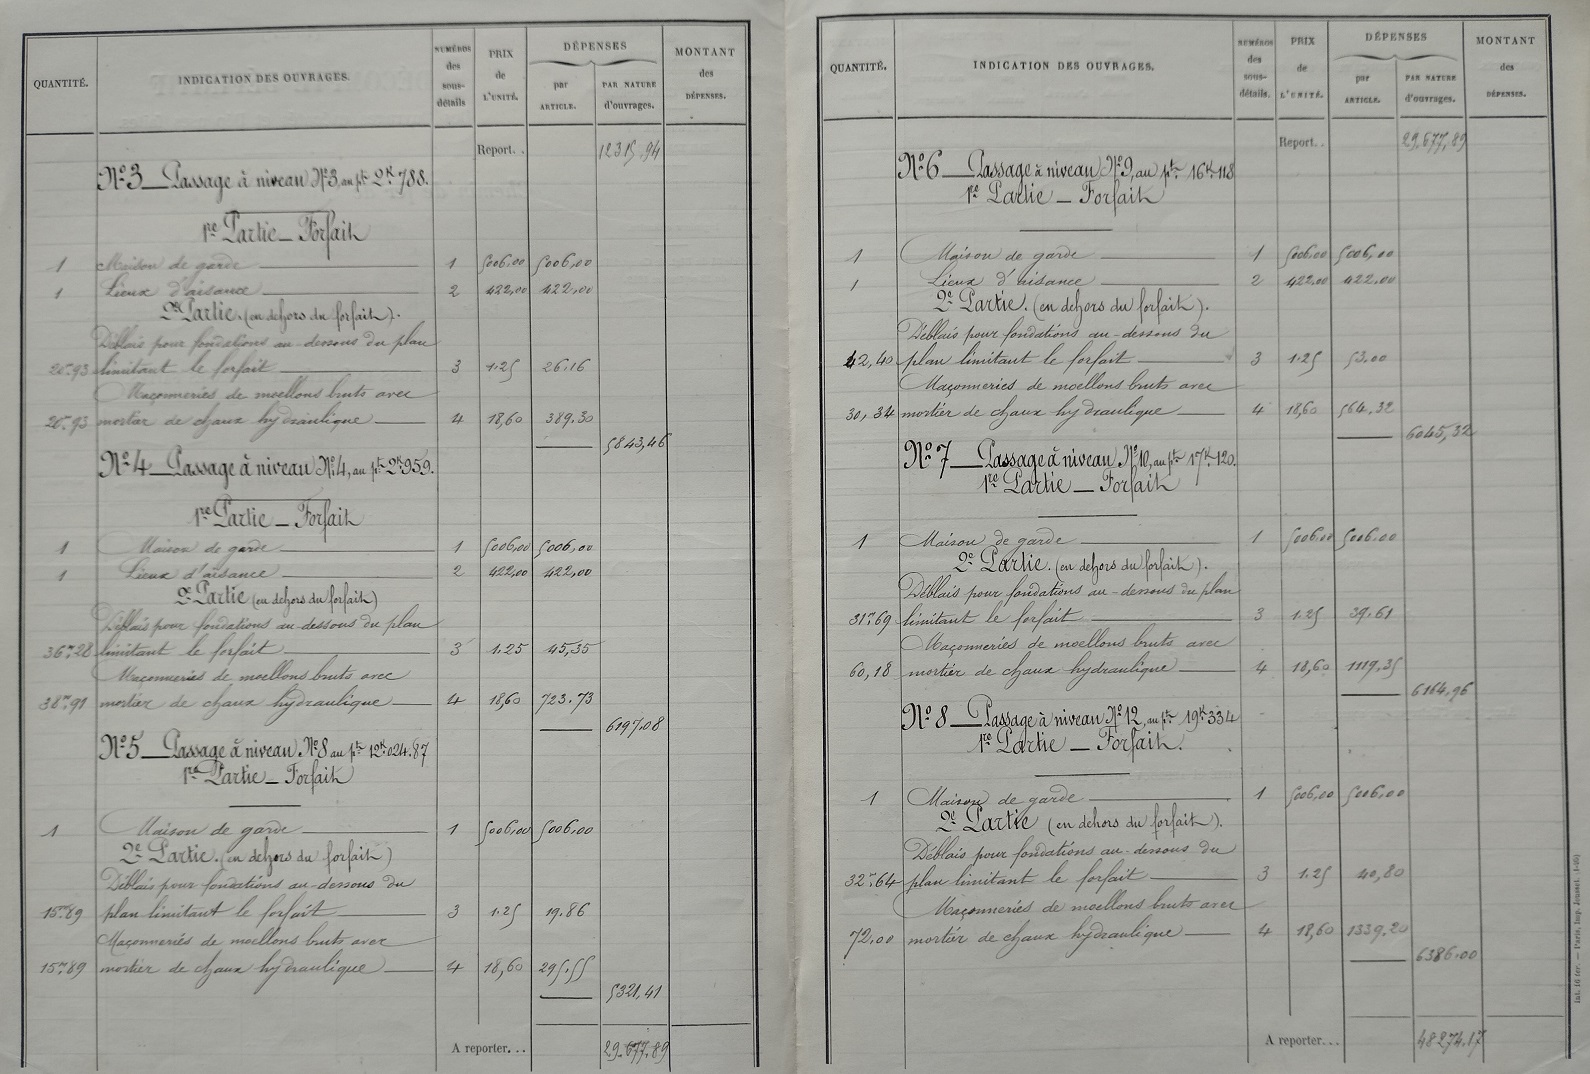 QUANTITÉ. INDICATION DES OUVRAGES. NUMÉROS des sous-détails PRIX de L'UNITÉ. DÉPENSES par ARTICLE. PAR NATURE d'ouvrages. MONTANT des DÉPENSES.
Report. . 12315.94
N°3 — Passage à niveau N°3, au pt 2K 788.
1re Partie — Forfait
1 Maison de garde 1 5006,00 5006,00
1 Lieux d'aisance 2 422,00 422,00
2e Partie. (en dehors du forfait).
Déblais pour fondations au-dessous du plan
20m93 limitant le forfait 3 1.25 26.16
Maçonneries de moellons bruts avec
20m93 mortier de chaux hydraulique 4 18,60 389.30
5843,46
N°4 — Passage à niveau N°4, au pt 2K 959.
1re Partie — Forfait
1 Maison de garde 1 5006,00 5006,00
1 Lieux d'aisance 2 422,00 422,00
2e Partie (en dehors du forfait)
Déblais pour fondations au-dessous du plan
36m28 limitant le forfait 3 1.25 45,35
Maçonneries de moellons bruts avec
38m91 mortier de chaux hydraulique 4 18,60 723.73
6197.08
N°5 — Passage à niveau N°8 au pt 12K 024.87
1re Partie — Forfait
1 Maison de garde 1 5006,00 5006,00
2e Partie. (en dehors du forfait)
Déblais pour fondations au-dessous du
15m89 plan limitant le forfait 3 1.25 19.86
Maçonneries de moellons bruts avec
15m89 mortier de chaux hydraulique 4 18,60 295.55
5321,41
A reporter... 29.677.89
QUANTITÉ. INDICATION DES OUVRAGES. NUMÉROS des sous-détails. PRIX de L'UNITÉ. DÉPENSES par ARTICLE. PAR NATURE d'ouvrages. MONTANT des DÉPENSES.
Report. . 29.677,89
N°6 — Passage à niveau N°9, au pt 16K 118
1re Partie — Forfait
1 Maison de garde 1 5006,00 5006,00
1 Lieux d'aisance 2 422,00 422,00
2e Partie. (en dehors du forfait).
Déblais pour fondations au-dessous du
42,40 plan limitant le forfait 3 1.25 53.00
Maçonneries de moellons bruts avec
30,34 mortier de chaux hydraulique 4 18,60 564.32
6045,32
N°7 — Passage à niveau N°10, au pt 17K 120.
1re Partie — Forfait
1 Maison de garde 1 5006,00 5006.00
2e Partie. (en dehors du forfait).
Déblais pour fondations au-dessous du plan
31m69 limitant le forfait 3 1.25 39.61
Maçonneries de moellons bruts avec
60,18 mortier de chaux hydraulique 4 18,60 1119,35
6164,96
N°8 — Passage à niveau N°12, au pt 19K 334
1re Partie — Forfait.
1 Maison de garde 1 5006,00 5006,00
2e Partie (en dehors du forfait).
Déblais pour fondations au-dessous du
32m64 plan limitant le forfait 3 1.25 40,80
Maçonneries de moellons bruts avec
72,00 mortier de chaux hydraulique 4 18,60 1339.20
6386.00
A reporter... 48274.17